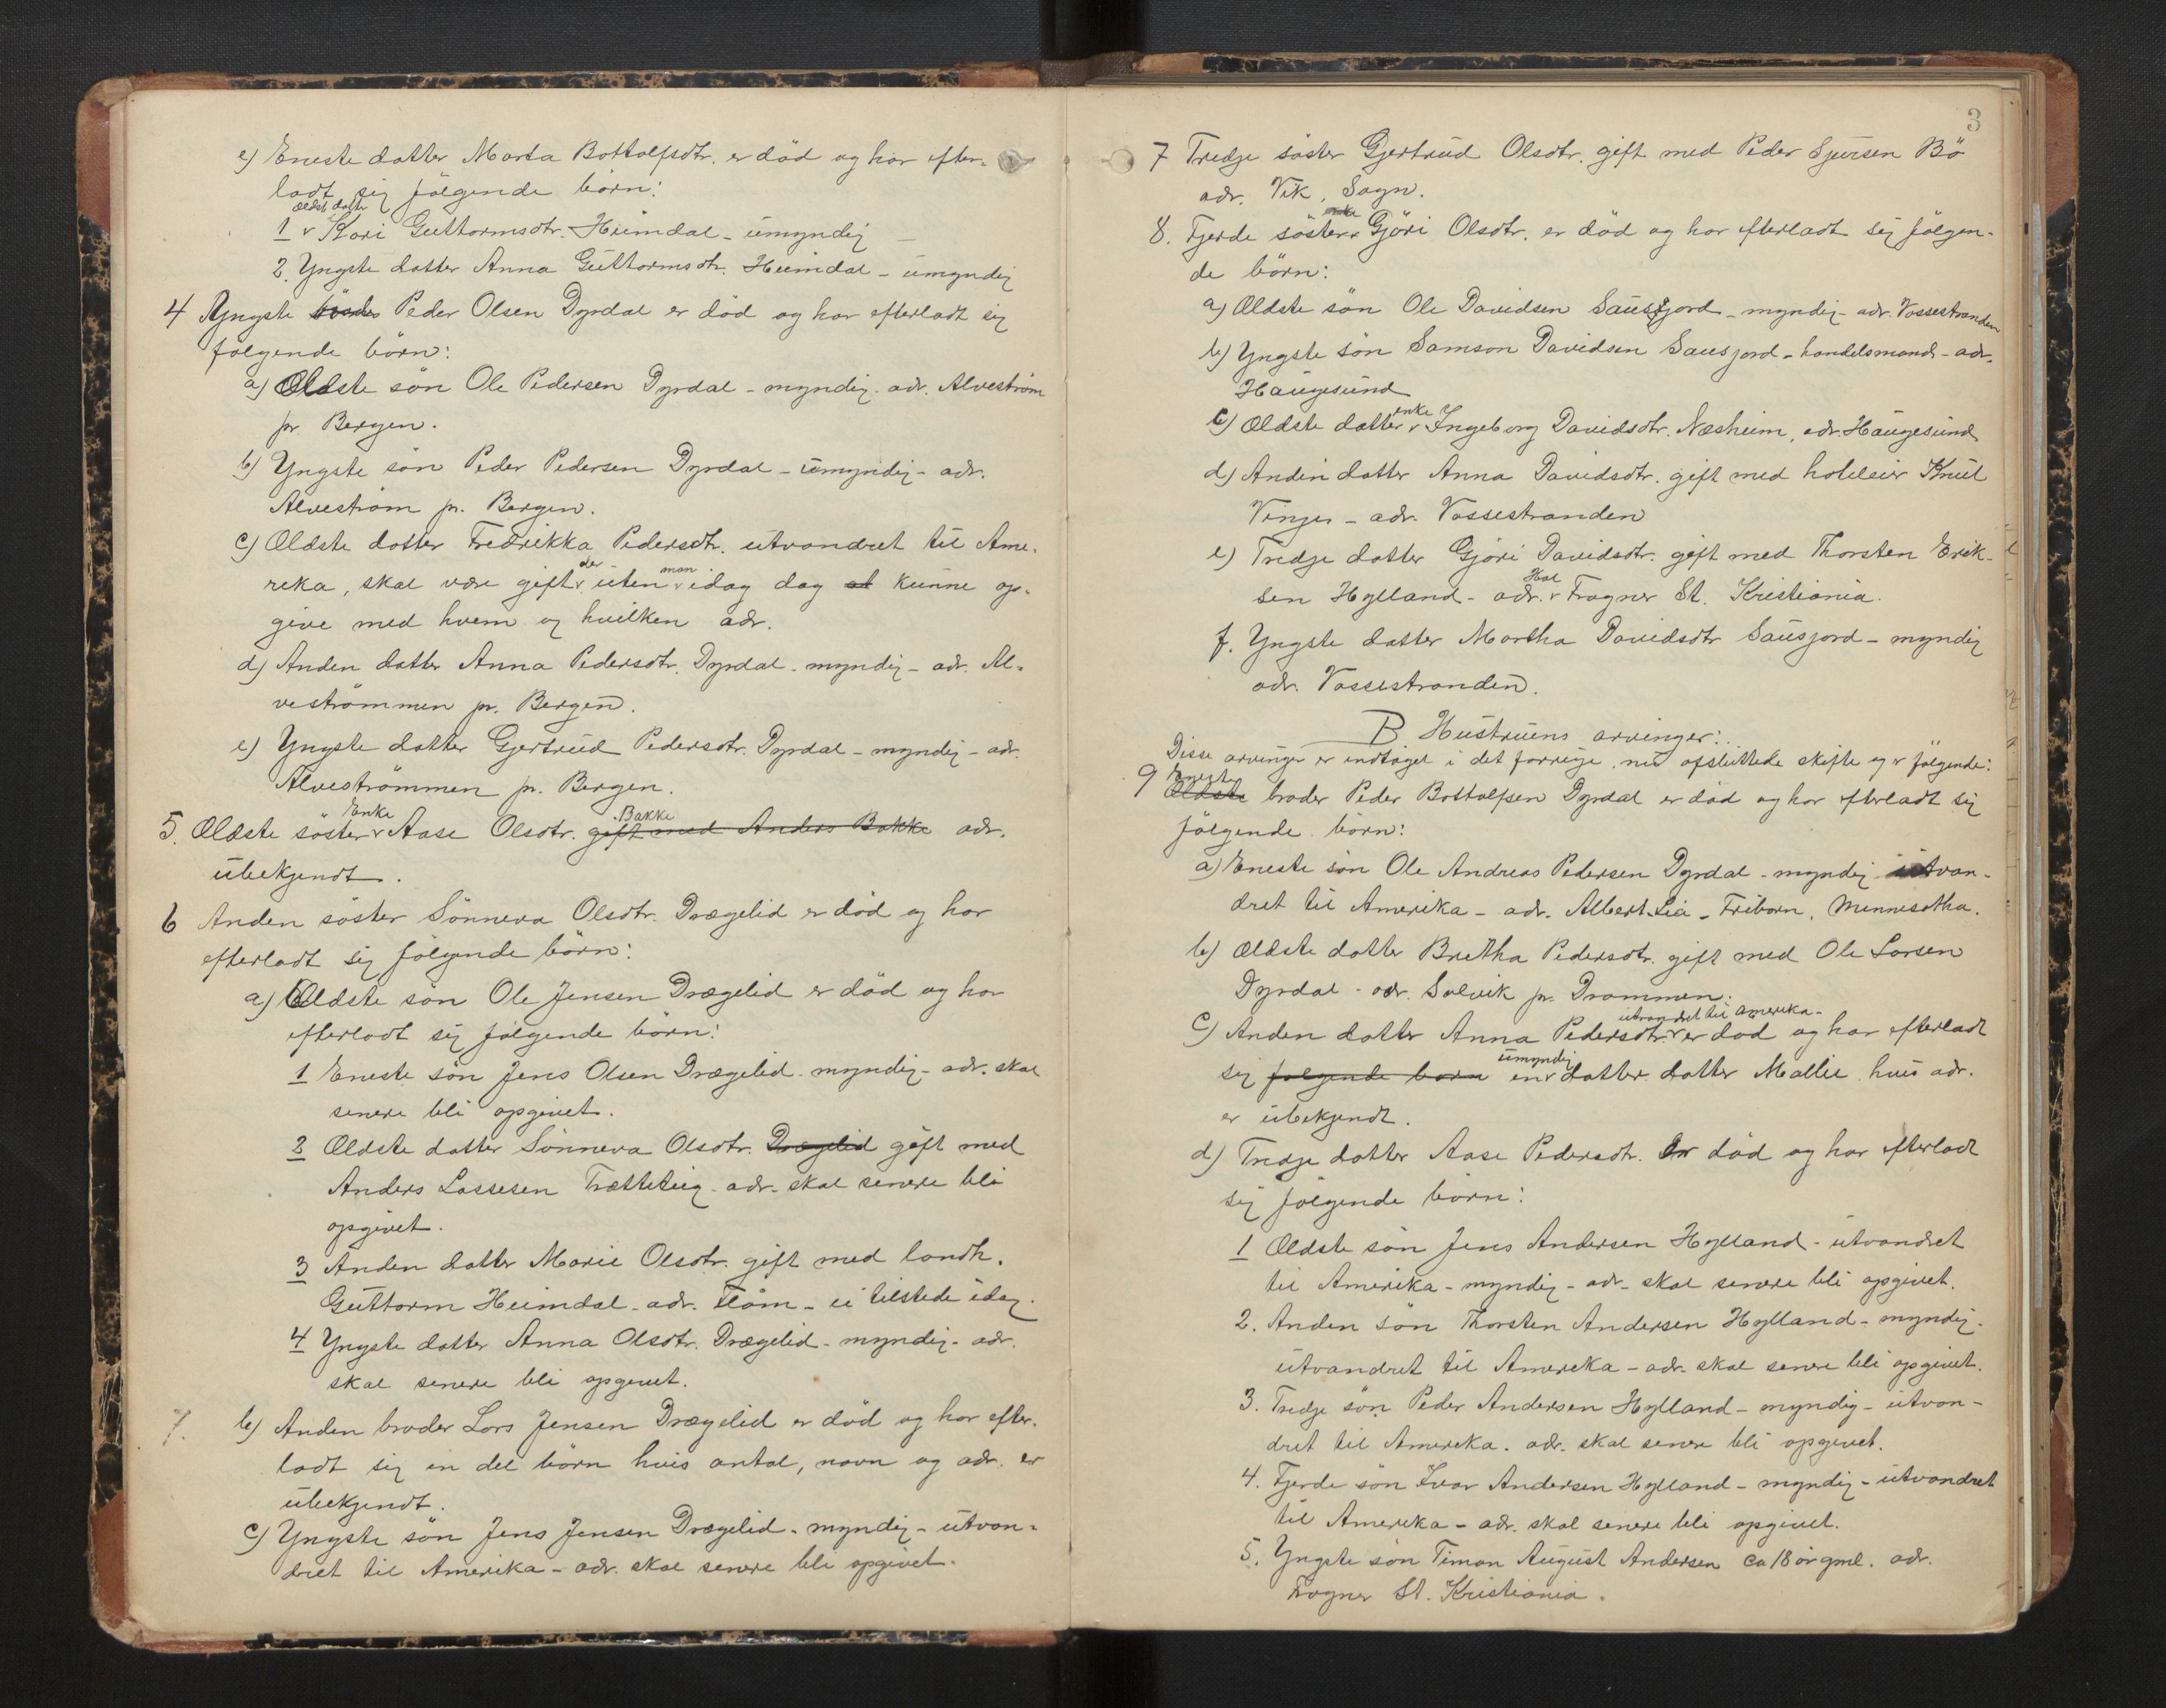 e) Eneste datter Marta Bottolfsdtr. er död og har efter-
ladt sig følgende børn:
ældst datter
1 v Kari Guttormsdtr. Heimdal - umyndig
2. Yngste datter Anna Guttormsdtr. Heimdal - umyndig
4 Yngste broder Peder Olsen Dyrdal er död og har efterladt sig
følgende børn:
a) Ældste sön Ole Pedersen Dyrdal - myndig - adr. Alveström
pr. Bergen.
b) Yngste sön Peder Pedersen Dyrdal - umyndig - adr.
Alveström pr. Bergen.
c) Ældste datter Fredrikka Pedersdtr. utvandret til Ame-
der man
reka, skal være gift v uten v idag dag at kunne op-
give med hvem og hvilken adr.
d) Anden datter Anna Pedersdtr. Dyrdal - myndig - adr. Al-
veströmmen pr. Bergen.
e) Yngste datter Gjertrud Pedersdtr. Dyrdal - myndig - adr.
Alveströmmen pr. Bergen.
Enke Bakke
5. Ældste söster v Aase Olsdtr. gift med Anders Bakke adr.
ubekjendt.
6 Anden söster Sönneva Olsdtr. Drægelid er död og har
efterladt sig følgende börn:
a) Ældste sön Ole Jensen Drægelid er död og har
efterladt sig følgende börn:
1 Eneste sön Jens Olsen Drægelid - myndig - adr. skal
senere bli opgivet.
2 Ældste datter Sönneva Olsdtr. Drægelid gift med
Anders Lassesen Trætteteig - adr. skal senere bli
opgivet.
3 Anden datter Marie Olsdtr. gift med landh.
Guttorm Heimdal - adr. Flåm - ei tilstede idag.
4 Yngste datter Anna Olsdtr. Drægelid - myndig - adr.
skal senere bli opgivet.
7. b) Anden broder Lars Jensen Drægelid er död og har efter-
ladt sig en del börn hvis antal, navn og adr. er
ubekjendt.
c) Yngste sön Jens Jensen Drægelid - myndig - utvan-
dret til Amerika - adr. skal senere bli opgivet.
3
7 Tredje söster Gjertrud Olsdtr. gift med Peder Sjursen Bö
adr. Vik, Sogn.
enke
8. Fjerde söster v Gjöri Olsdtr. er död og har efterladt sig fölgen-
de börn:
a) Ældste sön Ole Davidsen Sausjord - myndig - adr. Vossestranden
b) Yngste sön Samson Davidsen Sausjord - handelsmand - adr.
Haugesund
enke
c) Ældste datter v Ingeborg Davidsdtr. Næsheim, adr. Haugesund
d) Anden datter Anna Davidsdtr. gift med hoteleier Knut
Vinjer - adr. Vossestranden
e) Tredje datter Gjöri Davidsdtr. gift med Thorsten Erik-
Hal
sen Hylland - adr. v Frogner St. Kristiania.
f. Yngste datter Martha Davidsdtr Sausjord - myndig
adr. Vossestranden.
B Hustruens arvinger:
Disse arvinger er indtaget i det forrige, nu afsluttede skifte og er fölgende:
Eneste
9 Ældste broder Peder Bottolfsen Dyrdal er död og har efterladt sig
fölgende börn:
a) Eneste sön Ole Andreas Pedersen Dyrdal - myndig utvan-
dret til Amerika - adr. Albert Lia - Friborn, Minnesotha.
b) Ældste datter Bretha Pedersdtr. gift med Ole Larsen
Dyrdal - adr. Solvik pr. Drammen.
utvandret til Amerika -
c) Anden datter Anna Pedersdtr. v er död og har efterladt
umyndig
sig følgende børn en v datter datter Mallie hvis adr.
er ubekjendt.
d) Tredje datter Aase Pedersdtr. er död og har efterladt
sig fölgende börn:
1 Ældste sön Jens Andersen Hylland - utvandret
til Amerika - myndig - adr. skal senere bli opgivet.
2. Anden sön Thorsten Andersen Hylland - myndig -
utvandret til Amerika - adr. skal senere bli opgivet.
3. Tredje sön Peder Andersen Hylland - myndig - utvan-
dret til Amerika. adr. skal senere bli opgivet.
4. Fjerde sön Ivar Andersen Hylland - myndig - utvandret
til Amerika - adr. skal senere bli opgivet.
5. Yngste sön Timan August Andersen ca 18 år gml. adr.
Frogner St. Kristiania.